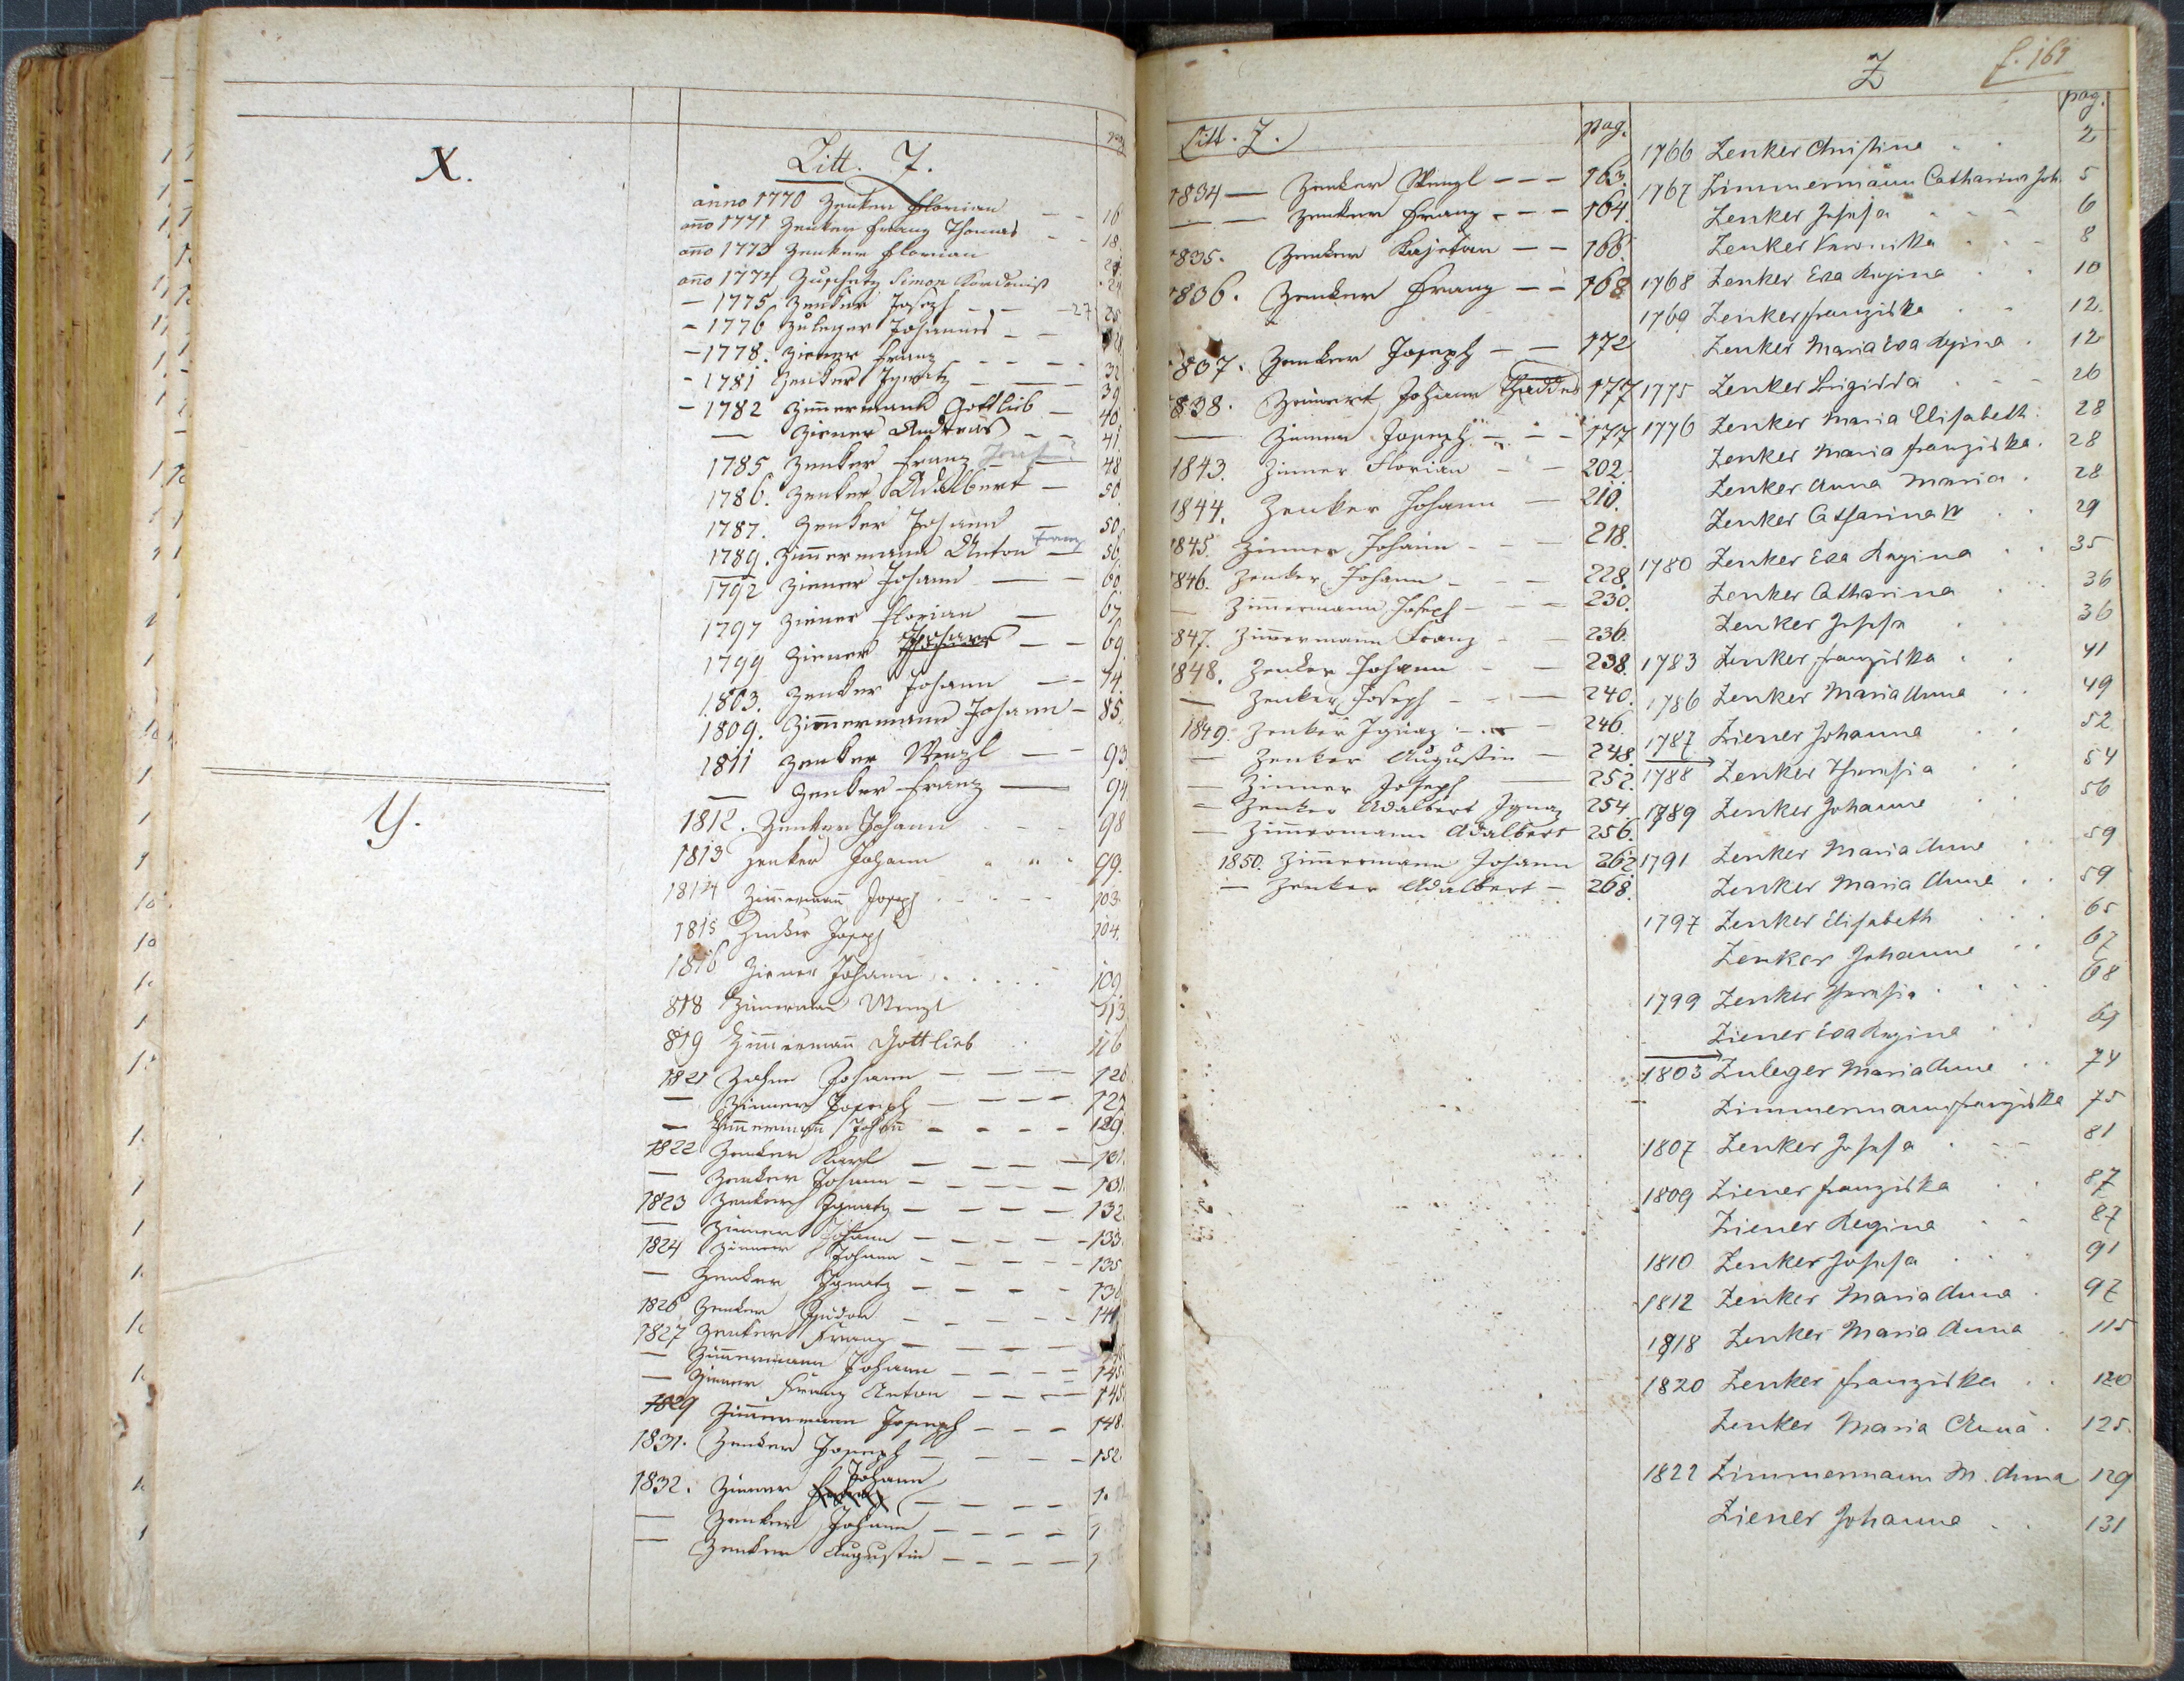 X.
Y.
Litt. Z.
pag
anno 1770 Zenker Florian — — 16
año 1771 Zenker Franz Thomas — — 18.
año 1773 Zenker Florian
año 1774 Simon
— 1775 Zenker Joseph — — 27 25
— 1776 Zuleger Johannes — —
— 1778. Ziener Franz — — — 32
— 1781 Zenker Ignatz — — 39
— 1782 Zim̄ermann Gottlieb — 40
— Ziener Andreas — — 41
1785 Zenker Franz — 48
1786. Zenker Adalbert — 50
1787. Zenker Johann — 50.
1789. Zim̄ermann Anton Franz — 56.
1792 Ziener Johann — — 60
1797 Ziener Florian — 67
1799 Ziener Johann — — 69
1803. Zenker Johann — — 74.
1809. Zim̄ermann Johann — 85.
1811 Zenker Wenzl — — 93
— Zenker Franz — 94
1812. Zenker Johann - - - 98
1813 Zenker Johann 99.
1814 Zim̄ermann Joseph 103
1815 Zenker Joseph 104.
1816 Ziener Johann . . . . . 109.
818 Zimermann Wenzl 113
819 Zim̄ermañ Gottlieb . . 116
1821 Johann — — — 126
— Zinner Joseph — — — 127
— Zim̄ermañ Johañ — — — 129.
1822 Zenker Karl — — — 131.
— Zenker Johann — — — 131.
1823 Zenker Ignatz — — — 132.
— Zinner Johann — — — 133.
1824 Zinner Johann — — — 135
— Zenker Ignatz — — — 136
1826 Zenker — — — 141
1827 Zenker Franz — — —
— Zim̄ermann Johann — — — 145.
— Zinner Franz Anton — — — 145.
1829 Zim̄ermann Joseph — — — 148.
1831. Zenker Joseph — — — 152
1832. Zinner Johann — — —
— Zenker Johann — — —
— Zenker Augustin — — —
Litt. Z.
pag.
1834 — Zenker Wenzl — — — 163.
— — Zenker Franz — — — 164.
1835. Zenker Kajetan — — 166.
1836. Zenker Franz — — 168
1837. Zenker Joseph — — 172
1838. Johann Thaddeus 177
— Zinner Joseph — — — 177
1843. Zinner Florian — — 202.
1844. Zenker Johann — 210.
1845. Zinner Johann — — 218.
1846. Zenker Johann — — — 228.
— Zim̄ermann Joseph — — — 230.
1847. Zim̄ermann Franz — — 236.
1848. Zenker Johann — — 238.
— Zenker Joseph — — — 240.
1849. Zenker Ignaz — — 246.
— Zenker Augustin — 248.
— Zinner Joseph — 252.
— Zenker Adalbert Ignaz 254.
— Zim̄ermann Adalbert 256.
1850. Zim̄ermann Johann 262
— Zenker Adalbert — 268.
Z
f. 161
pag.
1766 Zenker Christina . . 2
1767 Zimmermann Catharina Joh. 5
Zenker Josefa 6
Zenker Veronika 8
1768 Zenker Eva Regina . . 10
1769 Zenker Franziska . . 12.
Zenker Maria Eva Regina . 12
1775 Zenker Brigitta . . . 26
1776 Zenker Maria Elisabeth . 28
Zenker Maria Franziska . 28
Zenker Anna Maria . 28
Zenker Catharina . . 29
1780 Zenker Eva Regina . . 35
Zenker Catharina . . 36
Zenker Josefa . . 36
1783 Zenker Franziska . . 41
1786 Zenker Maria Anna . . 49
1787 Ziener Johanna . . 52
1788 Zenker Theresia . . 54
1789 Zenker Johanna . . 56
1791 Zenker Maria Anna . . 59
Zenker Maria Anna . . 59
1797 Zenker Elisabeth . . . 65
Zenker Johanna . . 67
1799 Zenker Theresia . . . 68
Ziener Eva Regina . . 69
1803 Zuleger Maria Anna . . 74
Zimmermann Franziska 75
1807 Zenker Josefa . . . 81
1809 Ziener Franziska . . 87
Ziener Regina . . 87
1810 Zenker Josefa . . . 91
1812 Zenker Maria Anna . 97
1818 Zenker Maria Anna . 115
1820 Zenker Franziska . . 120
Zenker Maria Anna . 125.
1822 Zimmermann M. Anna 129
Ziener Johanna . . 131